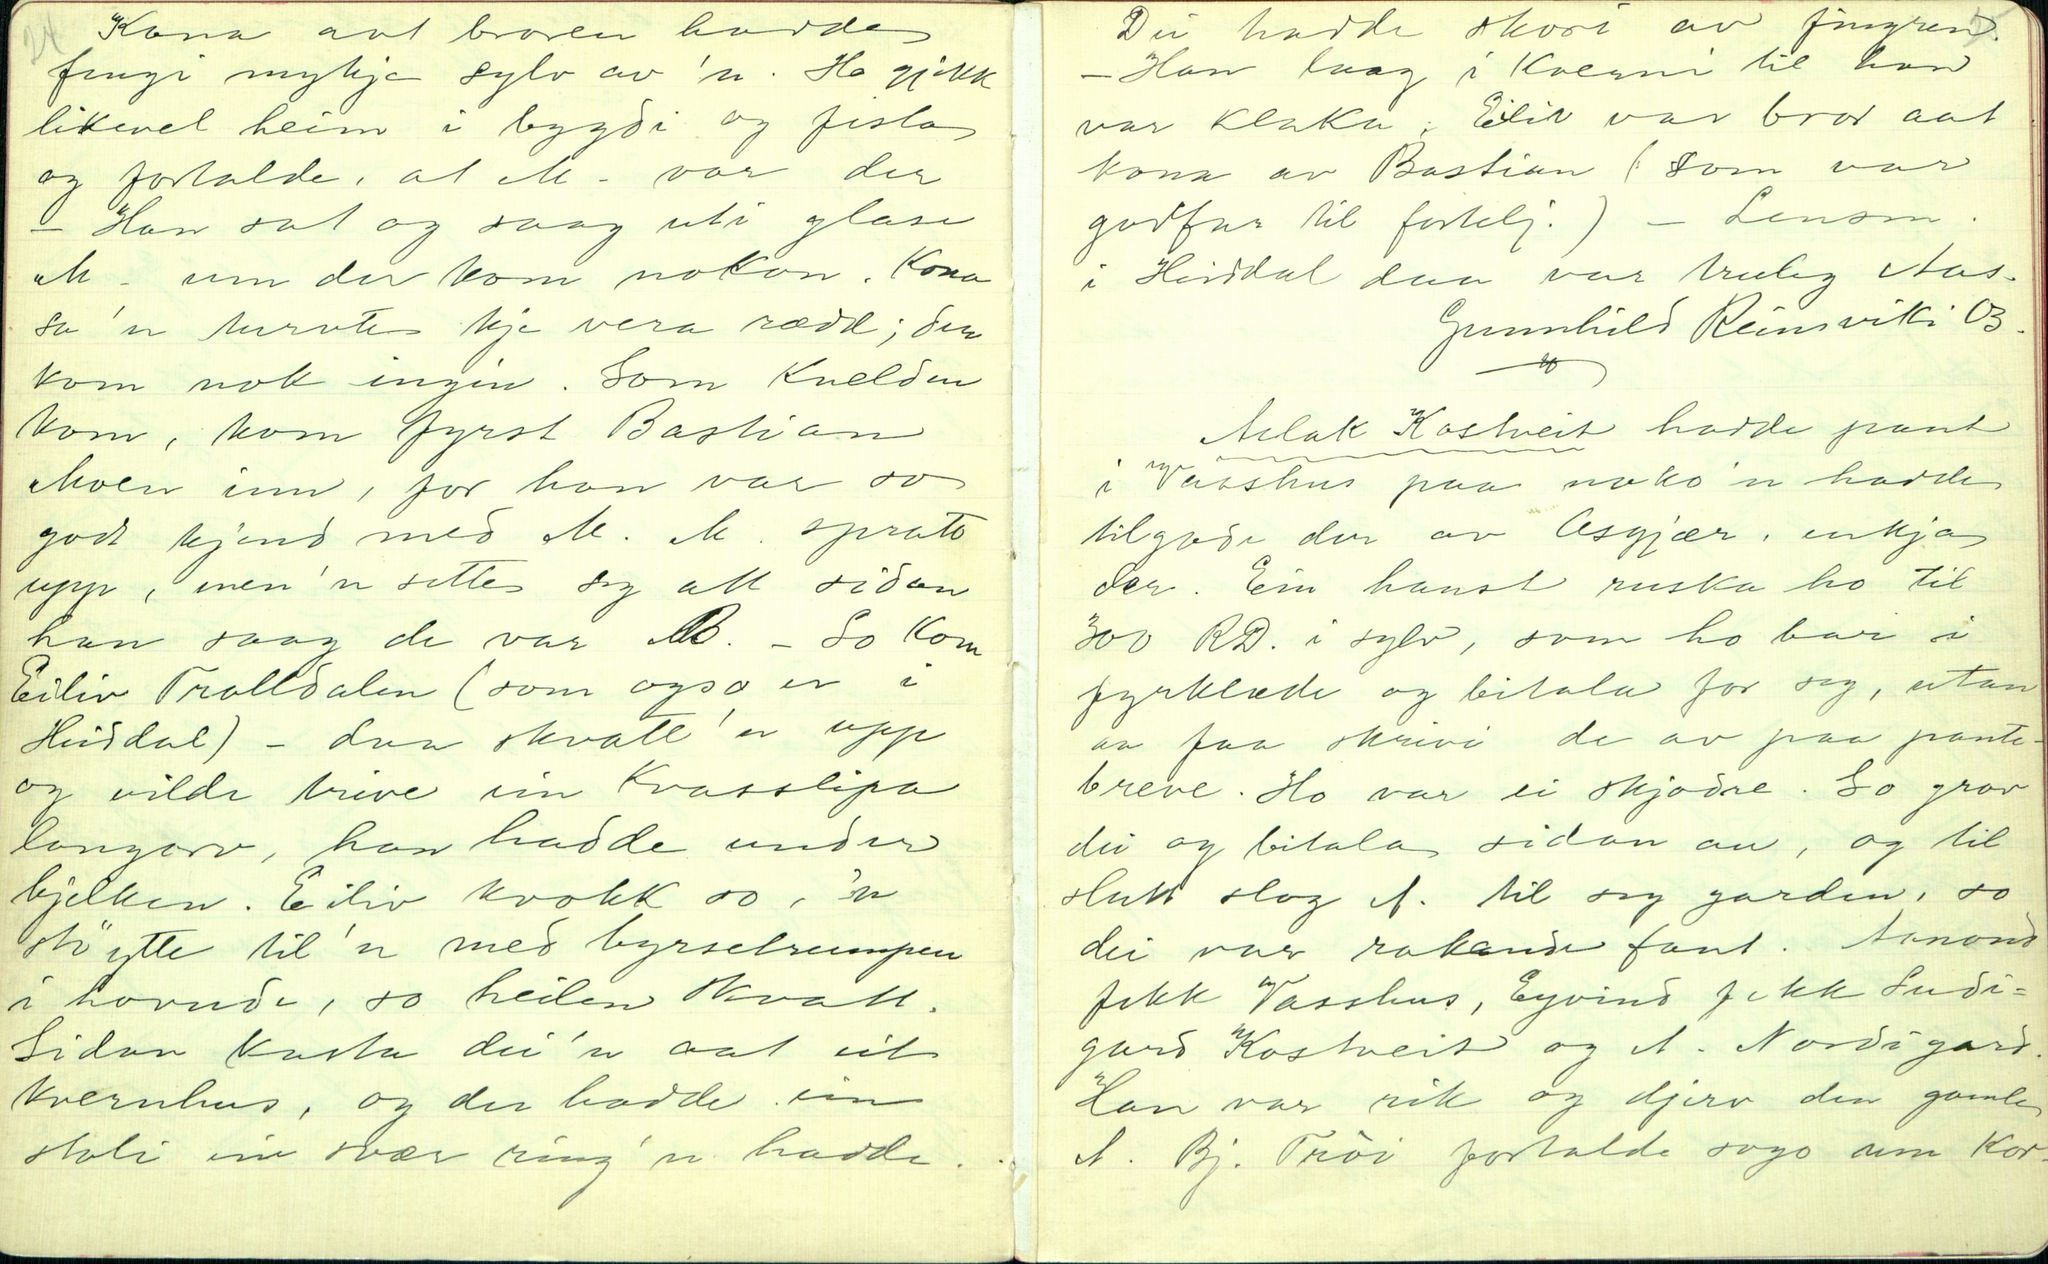 24
Kona aat broren hadde
fengi mykje sylv av 'n. Ho gjekk
likevel heim i bygdi og fisla
og fortalde, at M. var der
– Han sat og saag uti glase
M. um der kom nokon. Kona
sa 'n turvte kje vera rædd; der
kom nok ingin. Som kvelden
kom, kom fyrst Bastian
Moen inn, for han var so
godt kjend med M. M. spratt
upp, men 'n sette seg att sidan
han saag de var B. – So kom
Eiliv Trolldalen (som ogso er i
Hiddal) – daa skvatt 'n upp
og vilde trive ein kvasslipa
langorv, han hadde under
bjelken. Eiliv kvakk so, 'n
støytte til 'n med byrserumpen
i hovude, so heilen skvatt.
Sidan kasta dei 'n aat eit
kvernhus, og der hadde ein
stoli ein svær ring 'n hadde.
Dei hadde skori av fingren.
– Han laag i kverni til han
var klaka. Eiliv var bror aat
kona av Bastian (som var
godfar til fortelj.) – Lensm.
i Hiddal daa var truleg Aas.
Gunnhild Reinsviki 03.
Aslak Kostveit hadde pant
i Vasshus paa noko 'n hadde
tilgode der av Asgjær, enkja
der. Ein haust ruska ho til
300 RD. i sylv, som ho bar i
fyrklæde og bitala for seg, utan
aa faa skrivi de av paa pante-
breve. Ho var ei skjodre. So grov
dei og bitala sidan au, og til
slutt slog A. til seg garden, so
dei var rakande fant. Aanond
fekk Vasshus, Eyvind fekk Sudi-
gard Kostveit og A. Nordigard.
Han var rik og djerv den gamle
A. Bj. Trøi fortalde sogo um Kor-